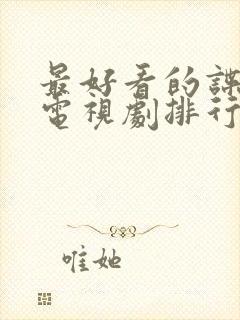 最好看的諜
電視劇排行
唯她